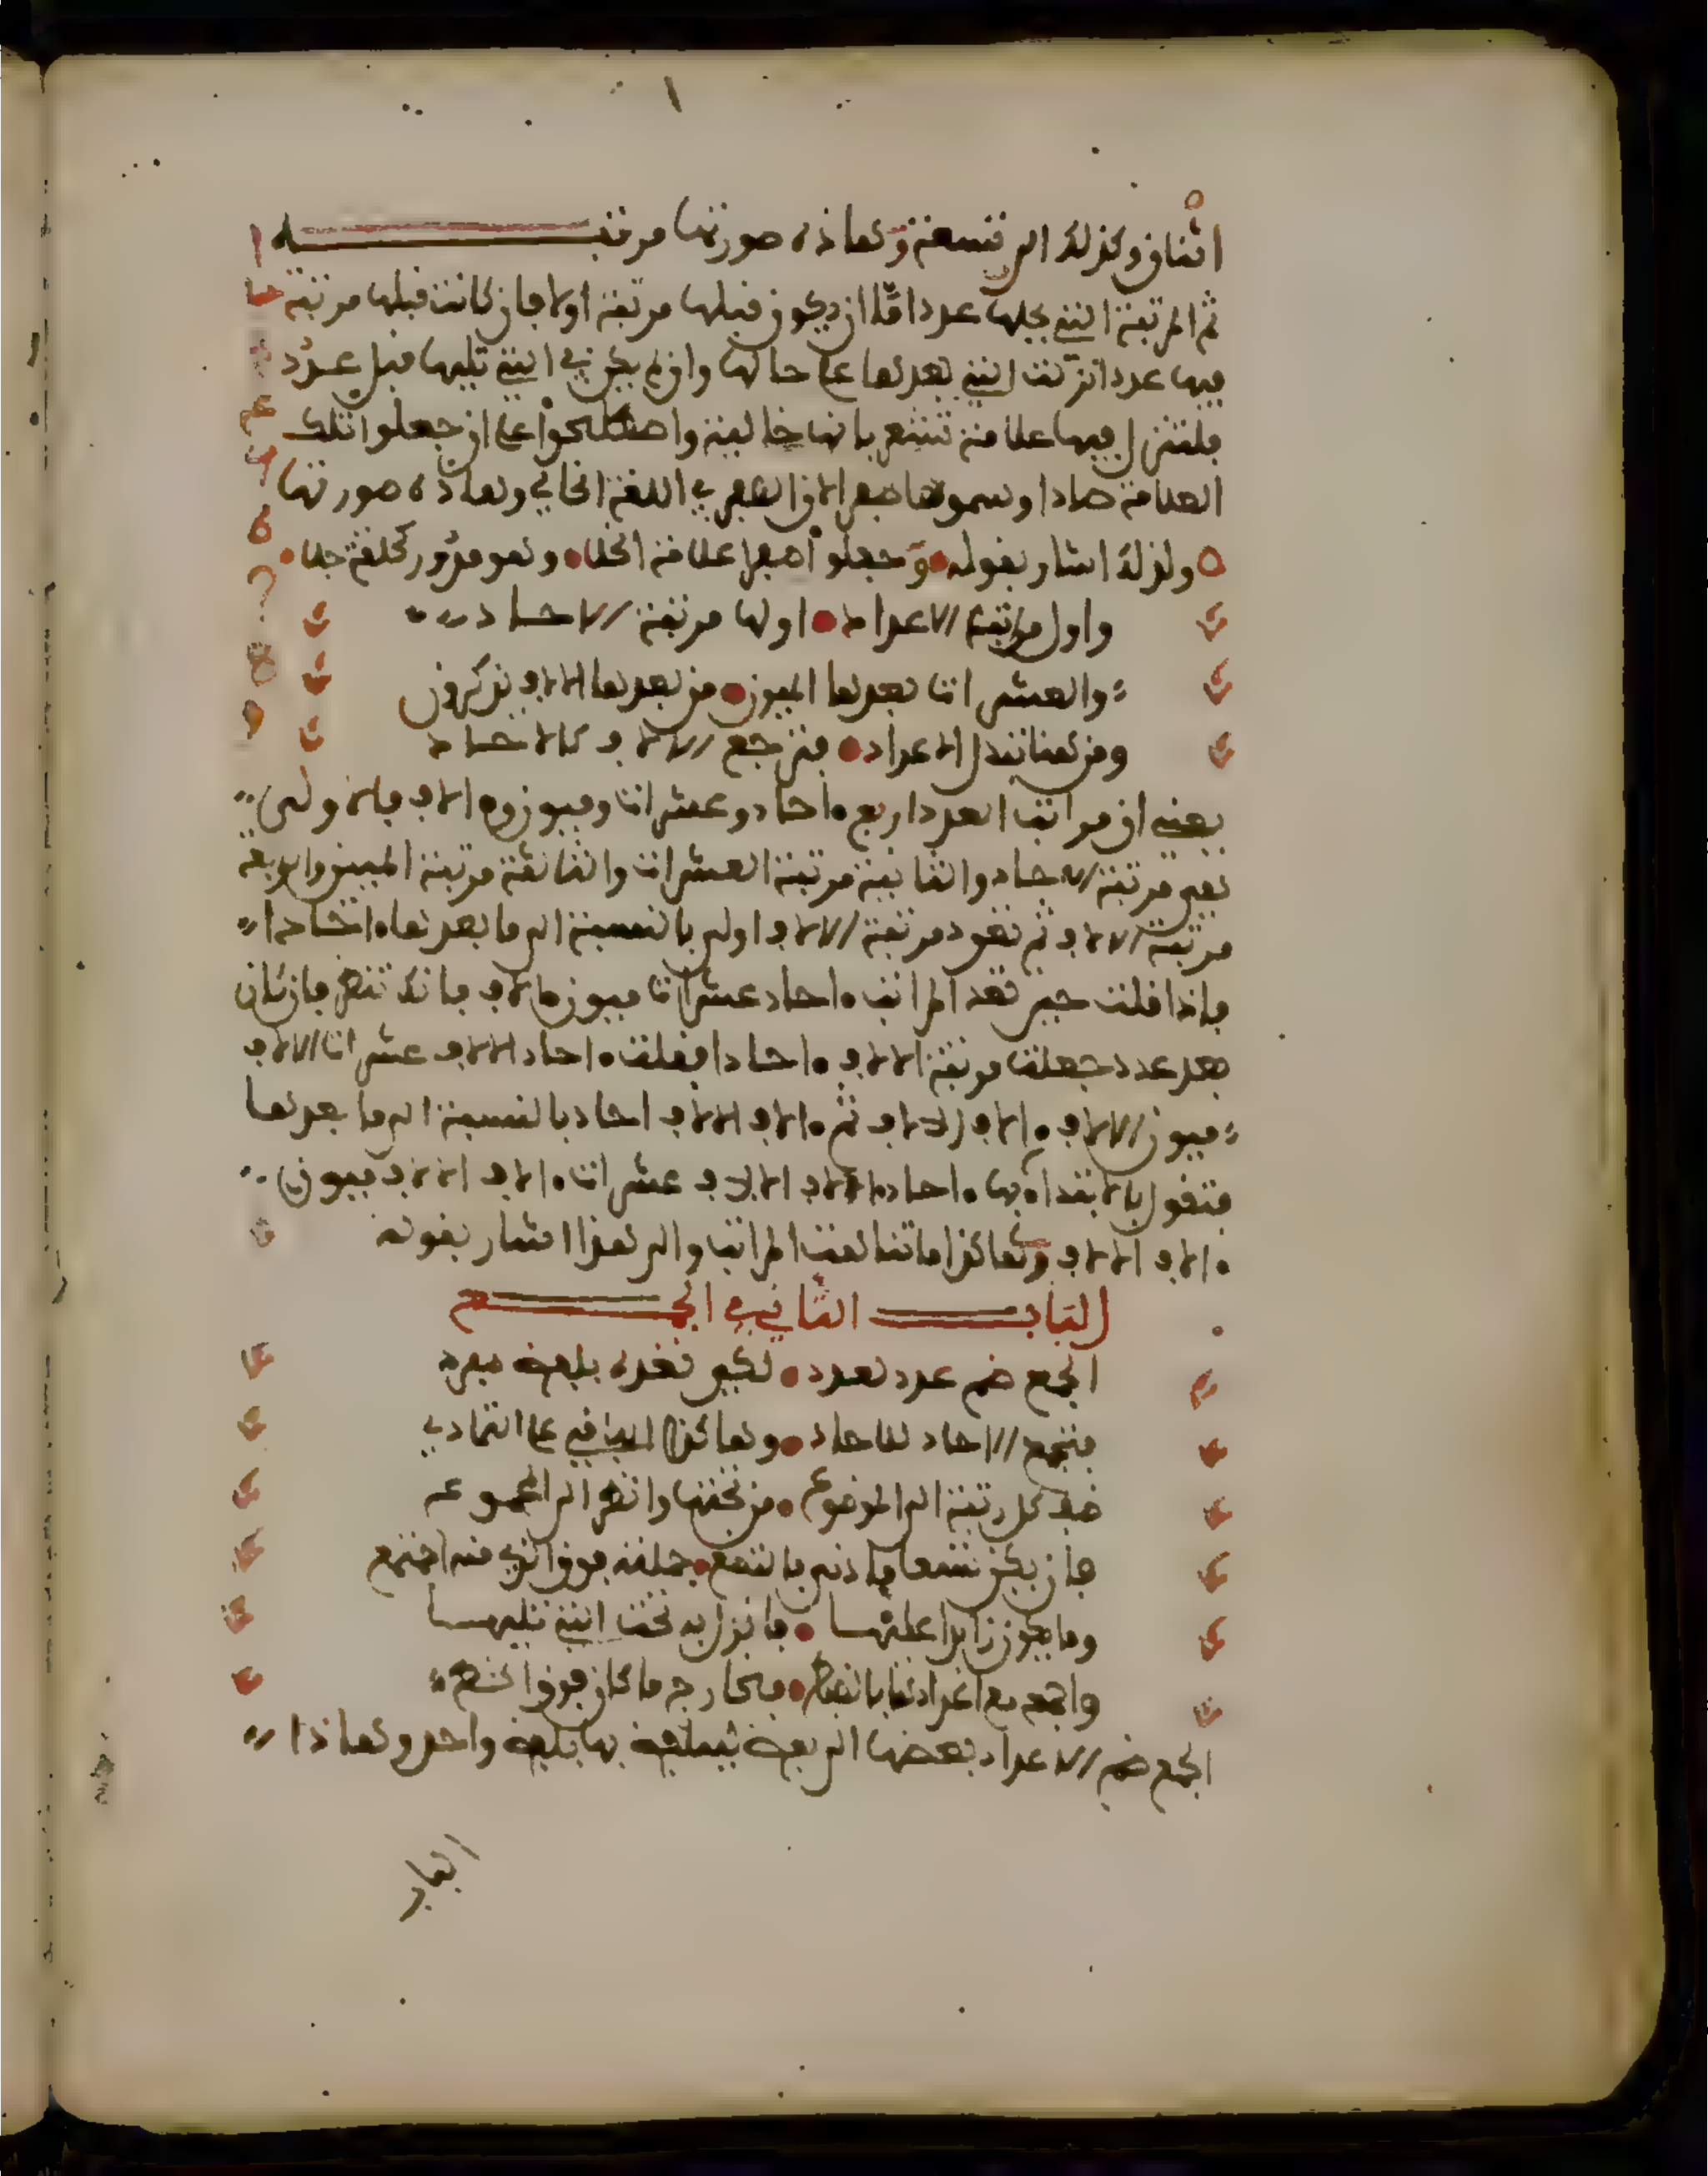 اثنان وكذلك الى تسعة وهاذه صورتها مرتبـــة
ثم المرتبة التي يحلها عدد اما ان يكون قبلها مرتبة اولا فان كانت قبلها مرتبة
فيها عدد اتركت التي بعدها على حالها وان لم يكن في التي تليها قبل عدد
فلتنزل فيها علامة تشعر بانها خالية واصطلحوا على ان جعلوا تلك
العلامة صادا وسموها صفرا لان الصفر في اللغة الخالي وهاذه صورتها
ولذلك اشار بقوله وجعلوا صفرا علامة الخلا وهو مدور كحلقة جلا
واول مراتب الاعداد اولها مرتبة الاحاد
والعشرات بعدها الميون من بعدها الالاف يذكرون
ومن هنا تنتقل الاعداد فترجع الالاف كالاحاد
يعني ان مراتب العدد اربع احاد وعشرات وميون والاف فالاولى
هي مرتبة الاحاد والثانية مرتبة العشرات والثالثة مرتبة الميين والرابعة
مرتبة الالاف ثم تعود مرتبة الالاف اولى بالنسبة الى ما بعدها احادا
فاذا قلت حين تعد المراتب احاد عشرات ميون الاف فانك تنظر فان كان
بعد عدد جعلت مرتبة الالاف احادا فقلت احاد الالاف عشرات الالاف
ميون الالاف الاف الالاف ثم الاف الالاف احاد بالنسبة الى ما بعدها
فتقول بالابتداء بها احاد الاف الالاف عشرات الاف الالاف ميون
الاف الالاف وهاكذا ما تتابعت المراتب والى هذا اشار بقوله
البـاب الثاني في الجمـع
الجمع ضم عدد لعدد لكي تعده بلفظ مفرد
فتجمع الاحاد للاحاد وهاكذا الباقي على التمادي
ضف كل رتبة الى الموضوع من تحتها وانظر الى المجموع
فان يكن تسعا فادنى بالتسع جعلته فوق الذي منه اجتمع
وما يكون زايدا عليها فانزل به تحت التي تليها
واجمعه مع اعدادها بالضم فخارج ما كان فوق الخط
الجمع ضم الاعداد بعضها الى بعض ليلفظ بها بلفظ واحد وهاذا